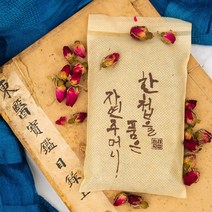 한 첩을
품은
자연주머니
東醫寶鑑目錄上